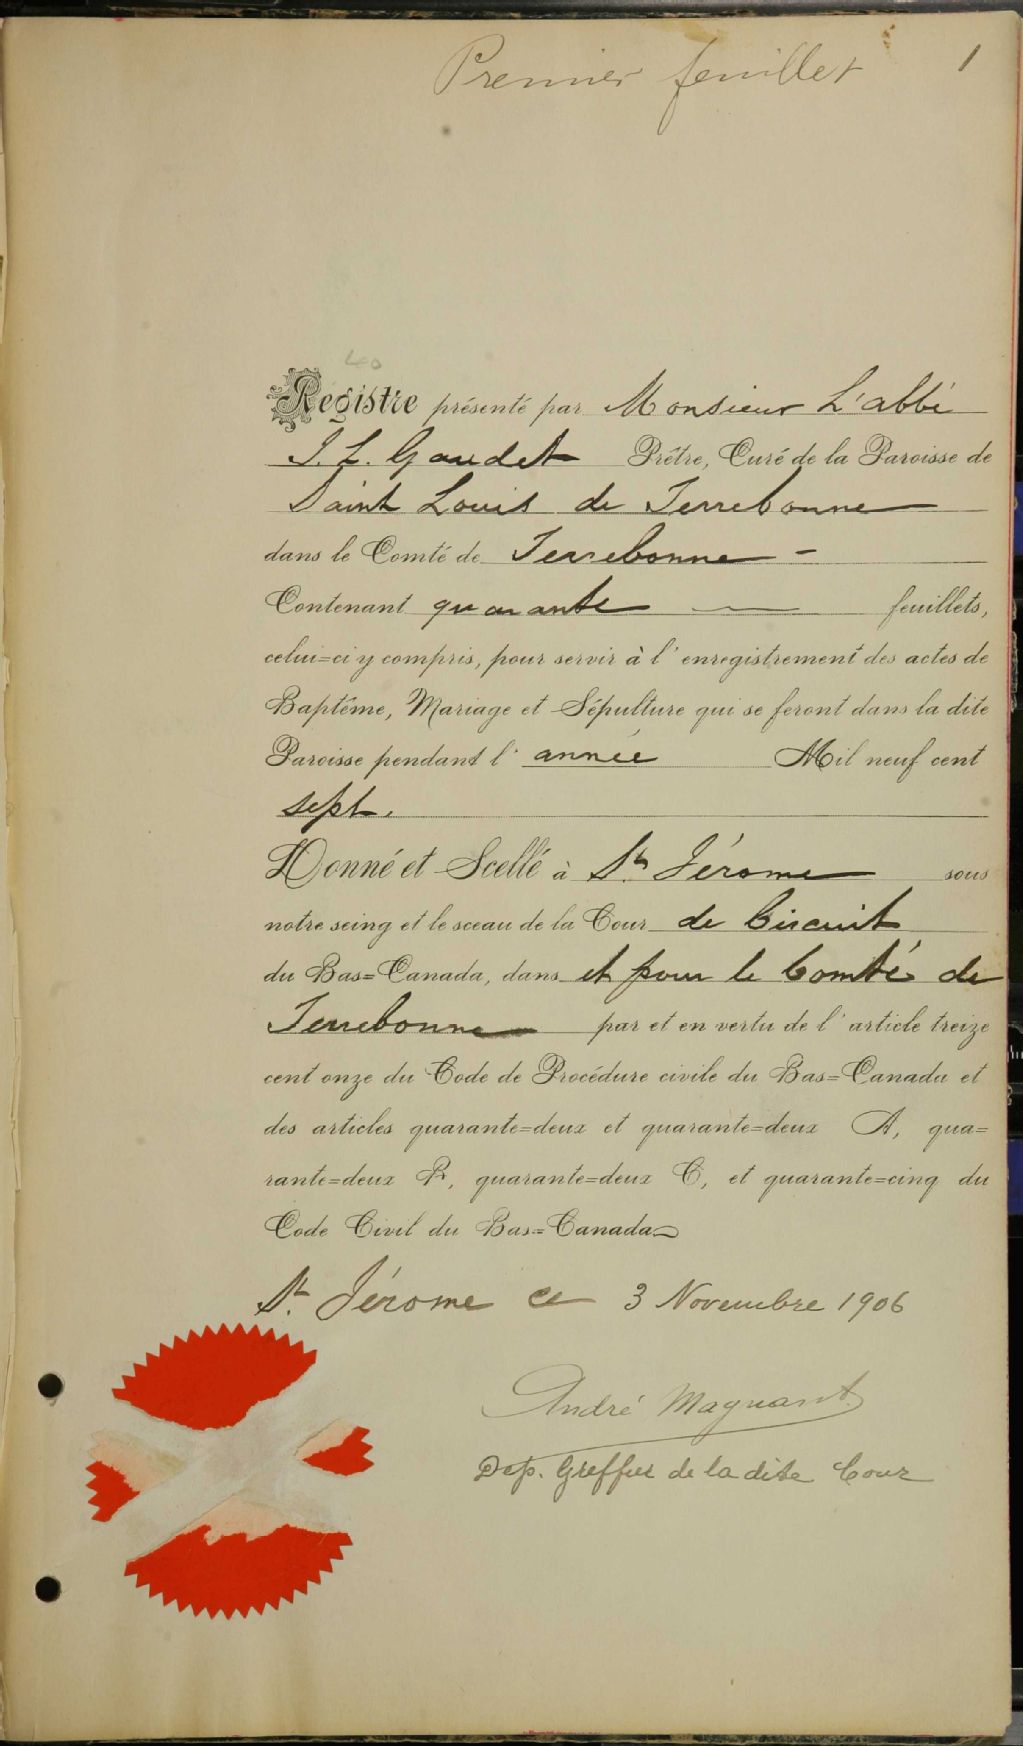 Premier feuillet 1
40
Registre présenté par Monsieur L'abbé
J. Z. Gaudet Prêtre, Curé de la Paroisse de
Saint Louis de Terrebonne
dans le Comté de Terrebonne -
Contenant quarante feuillets,
celui=ci y compris, pour servir à l'enregistrement des actes de
Baptême, Mariage et Sépulture qui se feront dans la dite
Paroisse pendant l'année Mil neuf cent
sept.
Donné et Scellé à St. Jérome sous
notre seing et le sceau de la Cour de Circuit
du Bas=Canada, dans et pour le Comté de
Terrebonne par et en vertu de l'article treize
cent onze du Code de Procédure civile du Bas=Canada et
des articles quarante=deux et quarante=deux A, qua=
rante=deux B, quarante=deux C, et quarante=cinq du
Code Civil du Bas=Canada
St. Jérome ce 3 Novembre 1906
André Magnant
Dep. Greffier de la dite Cour